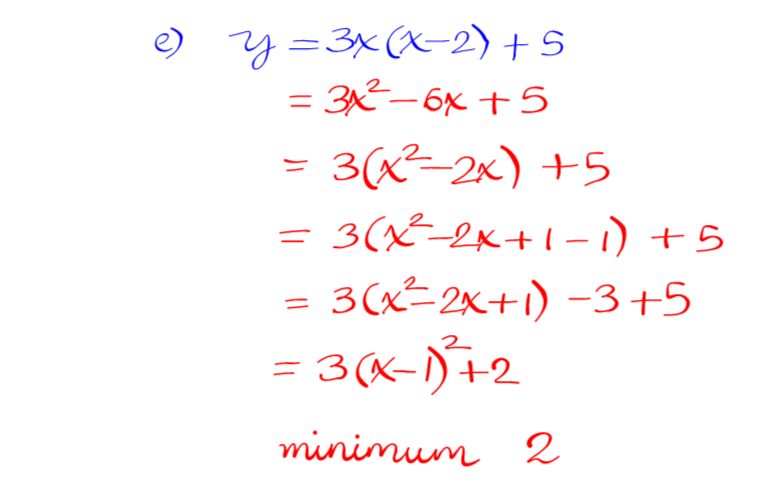 e) y = 3x(x-2) + 5
= 3x² - 6x + 5
= 3(x² - 2x) + 5
= 3(x² - 2x + 1 - 1) + 5
= 3(x² - 2x + 1) - 3 + 5
= 3(x - 1)² + 2
minimum 2